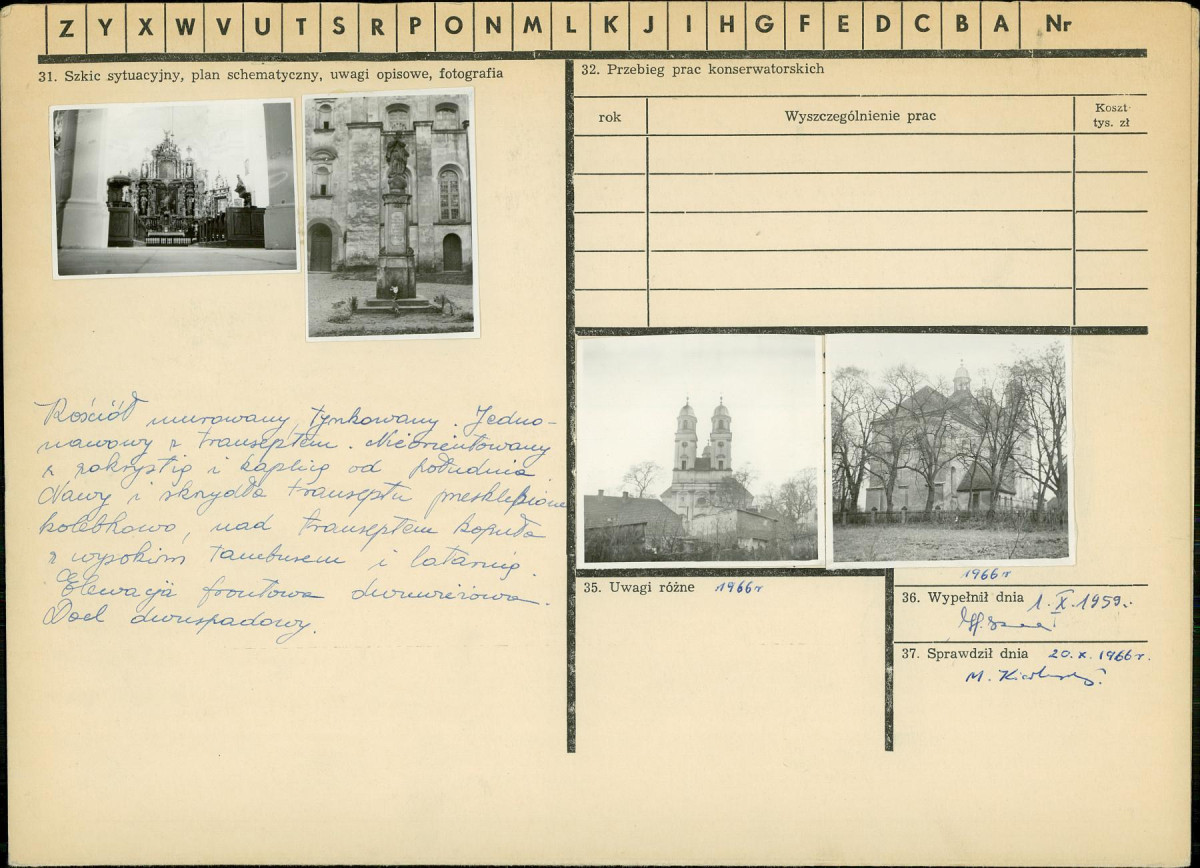 Z Y X W V U T S R P O N M L K J I H G F E D C B A Nr
31. Szkic sytuacyjny, plan schematyczny, uwagi opisowe, fotografia
Kościół murowany, tynkowany. Jedno-
nawowy z transeptem. Nieorientowany
z zakrystią i kaplicą od południa
Nawy i skrzydła transeptu przesklepione
kolebkowo, nad transeptem kopuła
z wysokim tamburem i latarnią.
Elewacja frontowa dwuwieżowa.
Dach dwuspadowy.
32. Przebieg prac konserwatorskich
rok
Wyszczególnienie prac
Koszt
tys. zł
35. Uwagi różne
1966 r
1966 r
36. Wypełnił dnia 1.X.1959.
37. Sprawdził dnia 20.X.1966 r.
M.